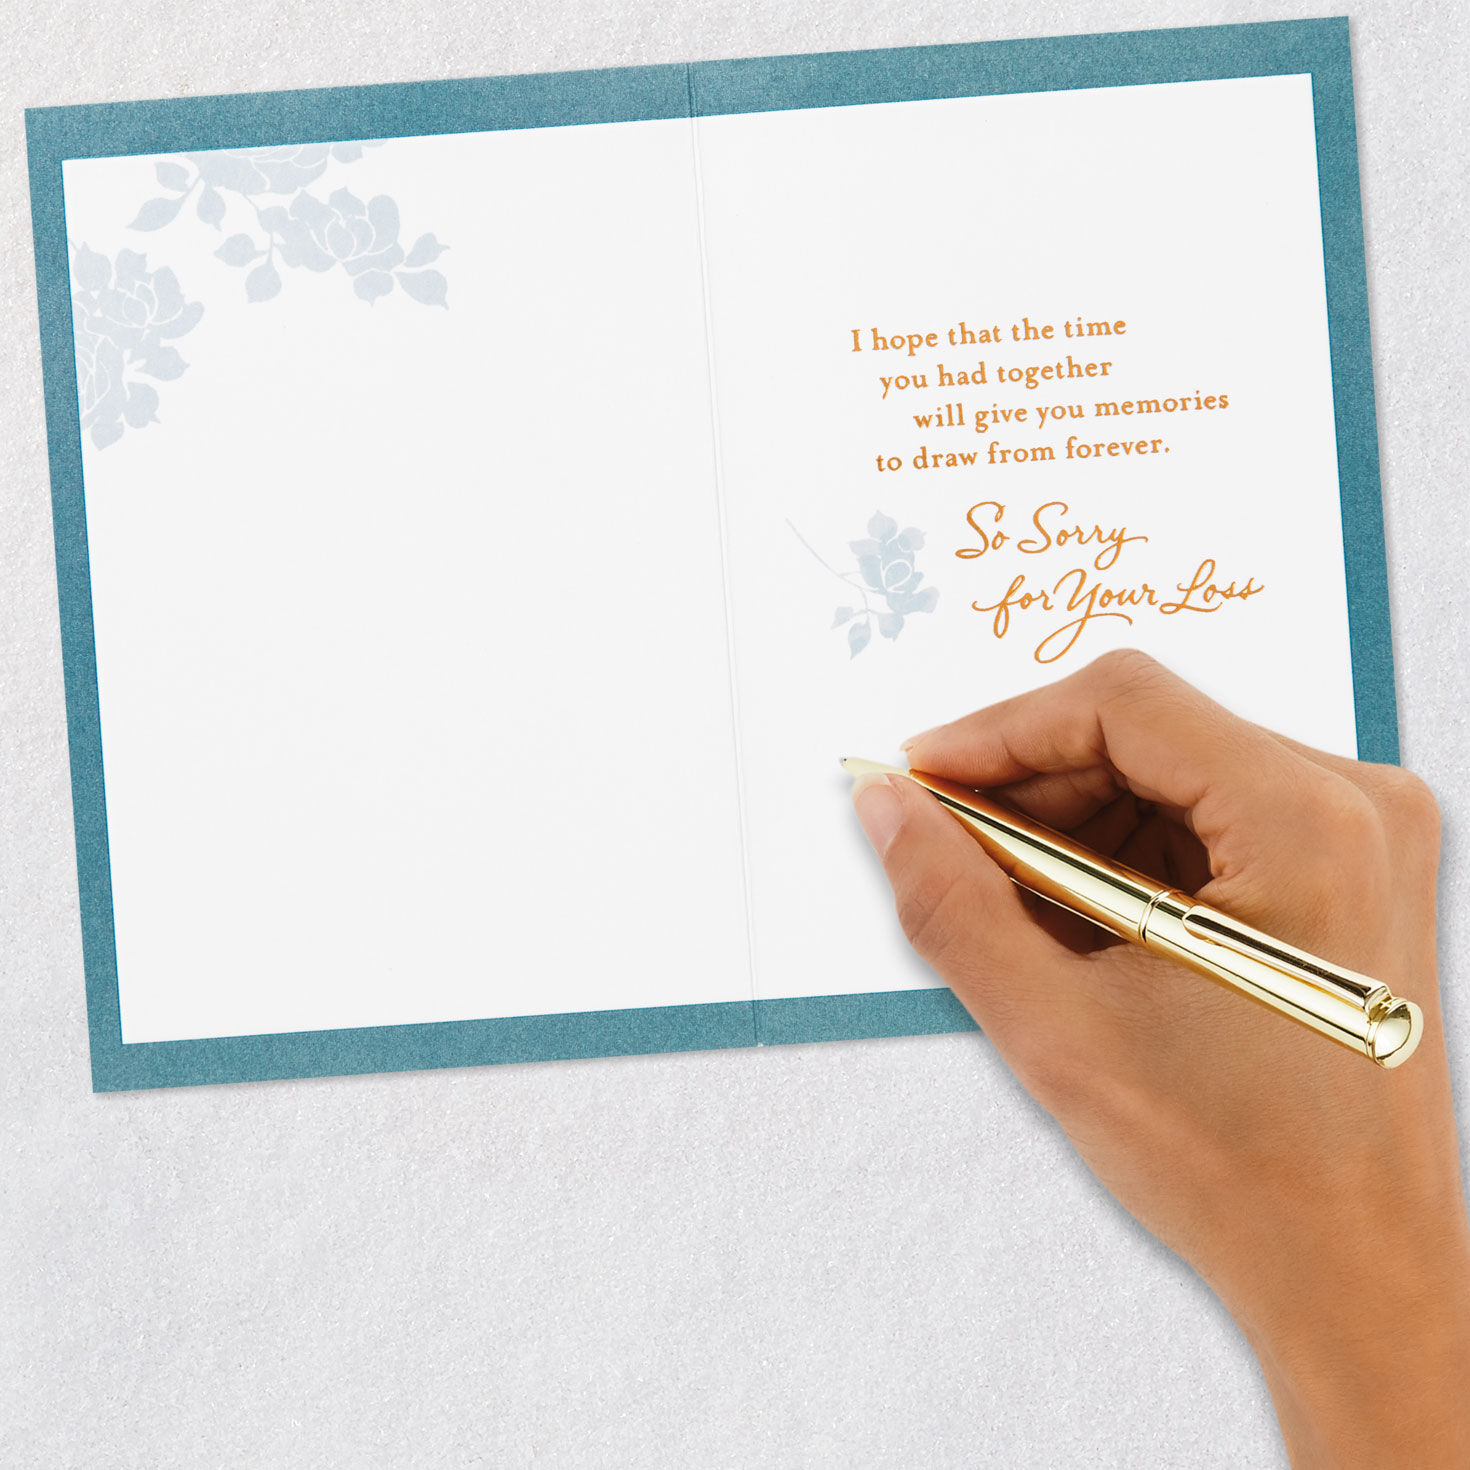 I hope that the time
you had together
will give you memories
to draw from forever.
So Sorry
for Your Loss